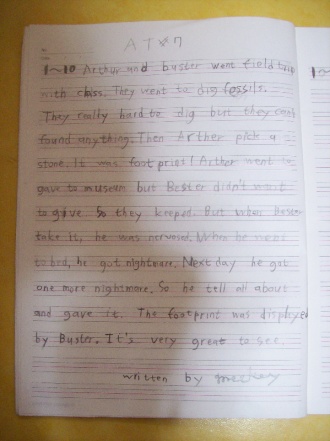 AT
1~10 Arthur and buster went field trip
with class. They went to dig fossils.
They really hard to dig but they can't
found anything. Then Arther pick a
stone. It was footprint! Arther want to
gave to museum but Bester didn't want
to give So they keeped. But when Buster
take it, he was nervosed. When he went
to bed, he got nightmare. Next day he got
one more nightmare. So he tell all about
and gave it. The footprint was displayed
by Buster. It's very great to see.
written by
1~